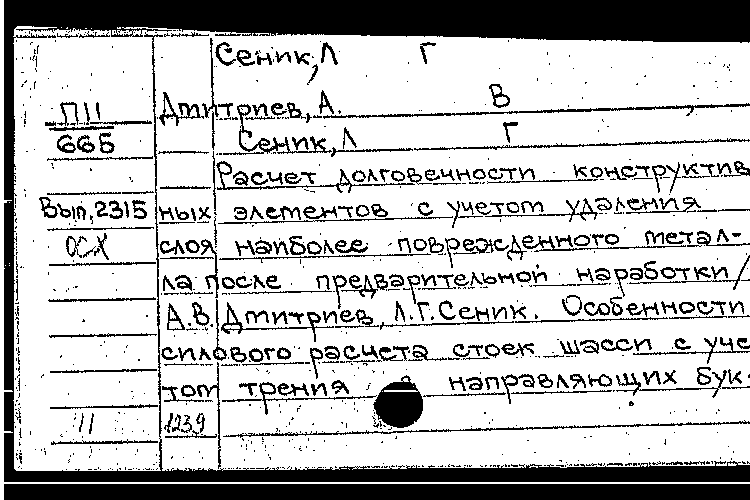 Сеник, Л Г
П11 Дмитриев, А. В
66Б Сеник, Л Г
Расчет долговечности конструктив
Вып. 2315 ных элементов с учетом удаления
ОСХ слоя наиболее поврежденного метал-
ла после предварительной наработки /
А.В. Дмитриев, Л.Г. Сеник. Особенности
силового расчета стоек шасси с уче
том трения в направляющих бук-
11 1239